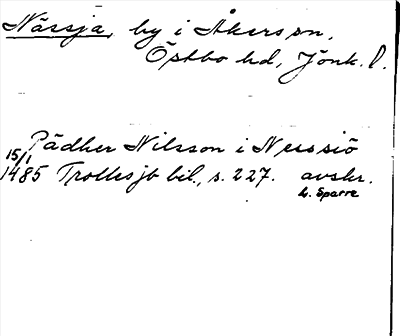 Nässja, by i Åkers sn,
Östbo hd, Jönk. l.
Pädher Nilsson i Nerssiö
15/1
1485 Trollesjb bil., s. 227. avskr.
L. Sparre